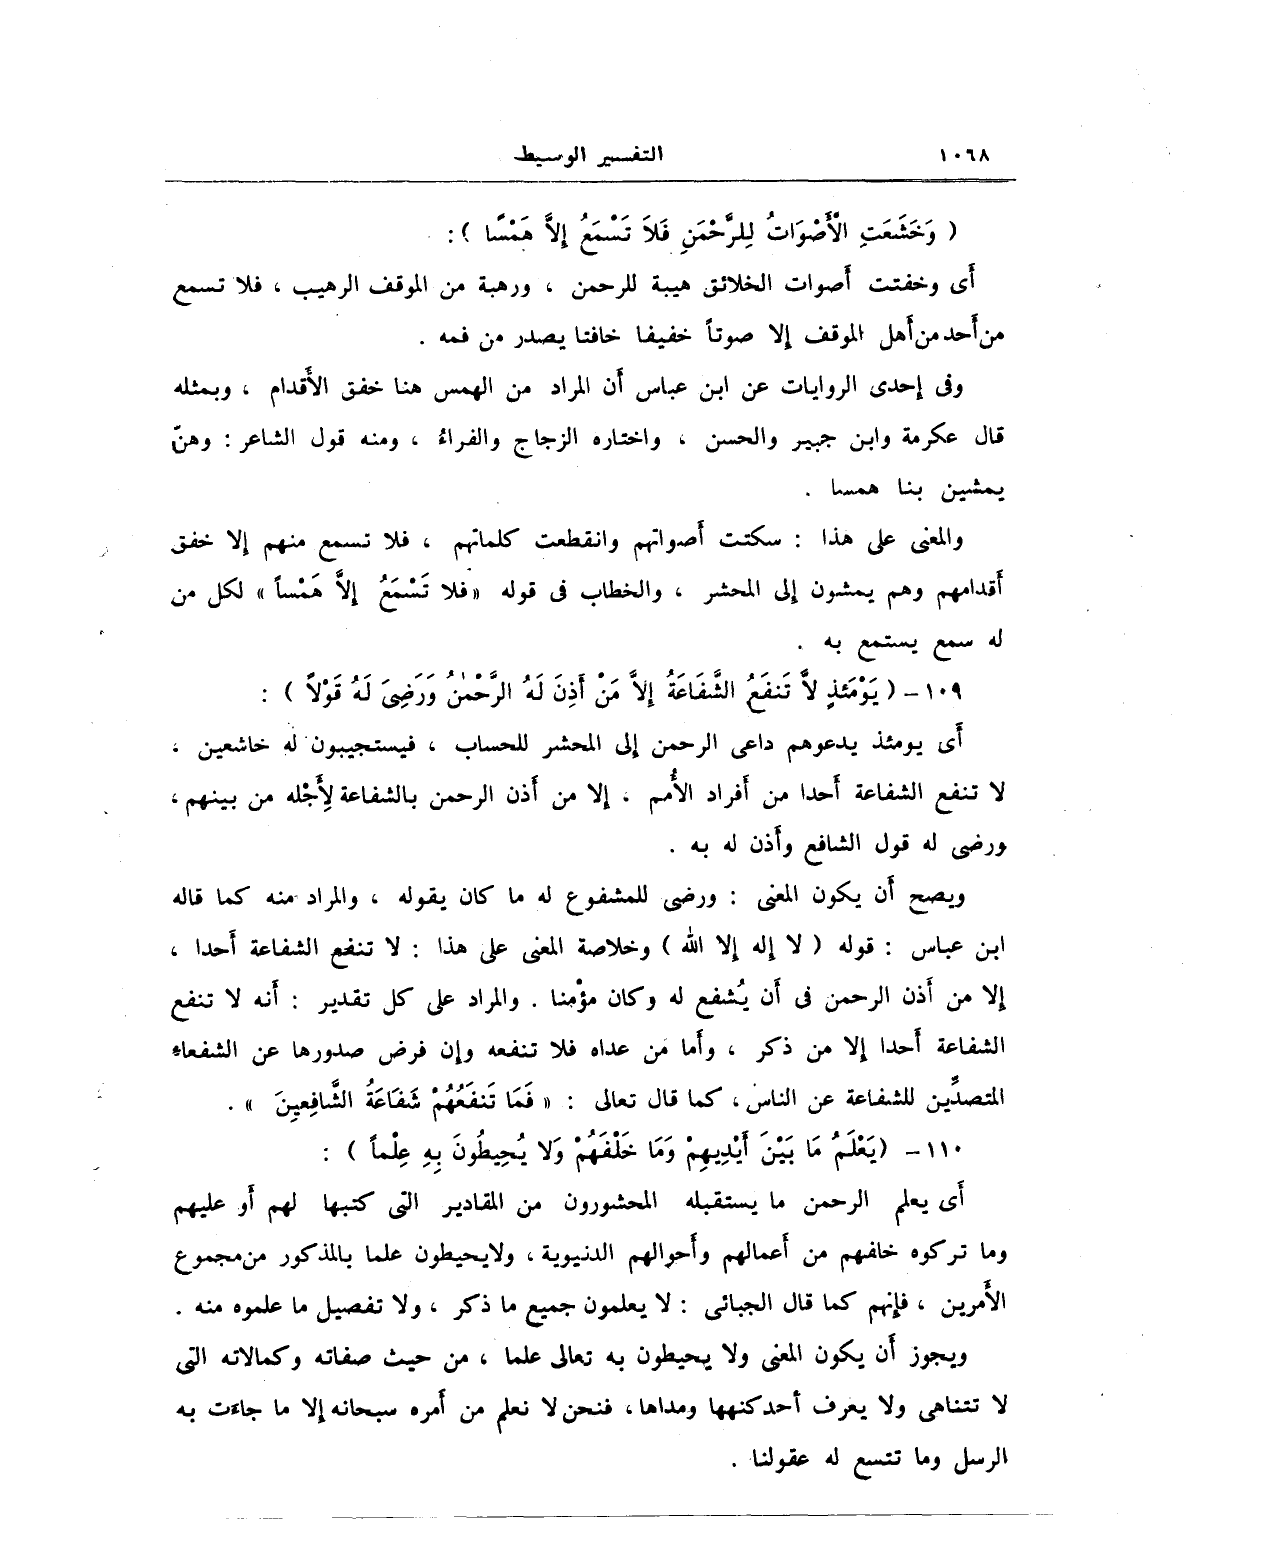 ١٠٦٨ التفسير الوسيط
( وَخَشَعَتِ الْأَصْوَاتُ لِلرَّحْمَنِ فَلاَ تَسْمَعُ إِلاَّ هَمْسًا ) :
أَى وخفتت أَصوات الخلائق هيبة للرحمن ، ورهبة من الموقف الرهيب ، فلا تسمع
من أَحد من أَهل الموقف إِلا صوتاً خفيفا خافتا يصدر من فمه .
وفى إِحدى الروايات عن ابن عباس أَن المراد من الهمس هنا خفق الأَقدام ، وبمثله
قال عكرمة وابن جبير والحسن ، واختاره الزجاج والفراءُ ، ومنه قول الشاعر : وهنّ
يمشين بنا همسا .
والمعنى على هذا : سكتت أَصواتهم وانقطعت كلماتهم ، فلا تسمع منهم إِلا خفق
أَقدامهم وهم يمشون إِلى المحشر ، والخطاب فى قوله «فلا تَسْمَعُ إِلاَّ هَمْساً» لكل من
له سمع يستمع به .
١٠٩ – ( يَوْمَئذٍ لاَّ تَنفَعُ الشَّفَاعَةُ إِلاَّ مَنْ أَذِنَ لَهُ الرَّحْمٰنُ وَرَضِىَ لَهُ قَوْلاً ) :
أَى يومئذ يدعوهم داعى الرحمن إِلى المحشر للحساب ، فيستجيبون له خاشعين ،
لا تنفع الشفاعة أَحدا من أَفراد الأُمم . إِلا من أَذن الرحمن بالشفاعة لِأَجْله من بينهم ،
ورضى له قول الشافع وأَذن له به .
ويصح أَن يكون المعنى : ورضى للمشفوع له ما كان يقوله ، والمراد منه كما قاله
ابن عباس : قوله ( لا إِله إِلا الله ) وخلاصة المعنى على هذا : لا تنفع الشفاعة أَحدا ،
إِلا من أَذن الرحمن فى أَن يُشفع له وكان مؤْمنا . والمراد على كل تقدير : أَنه لا تنفع
الشفاعة أَحدا إِلا من ذكر ، وأَما من عداه فلا تنفعه وإِن فرض صدورها عن الشفعاء
المتصدِّين للشفاعة عن الناس ، كما قال تعالى : « فَمَا تَنفَعُهُمْ شَفَاعَةُ الشَّافِعِينَ » .
١١٠ – (يَعْلَمُ مَا بَيْنَ أَيْدِيهِمْ وَمَا خَلْفَهُمْ وَلا يُحِيطُونَ بِهِ عِلْماً ) :
أَى يعلم الرحمن ما يستقبله المحشورون من المقادير التى كتبها لهم أَو عليهم
وما تركوه خلفهم من أَعمالهم وأَحوالهم الدنيوية ، ولايحيطون علما بالمذكور من مجموع
الأَمرين ، فإِنهم كما قال الجبائى : لا يعلمون جميع ما ذكر ، ولا تفصيل ما علموه منه .
ويجوز أَن يكون المعنى ولا يحيطون به تعالى علما ، من حيث صفاته وكمالاته التى
لا تتناهى ولا يعرف أحد كنهها ومداها ، فنحن لا نعلم من أَمره سبحانه إِلا ما جاءَت به
الرسل وما تتسع له عقولنا .